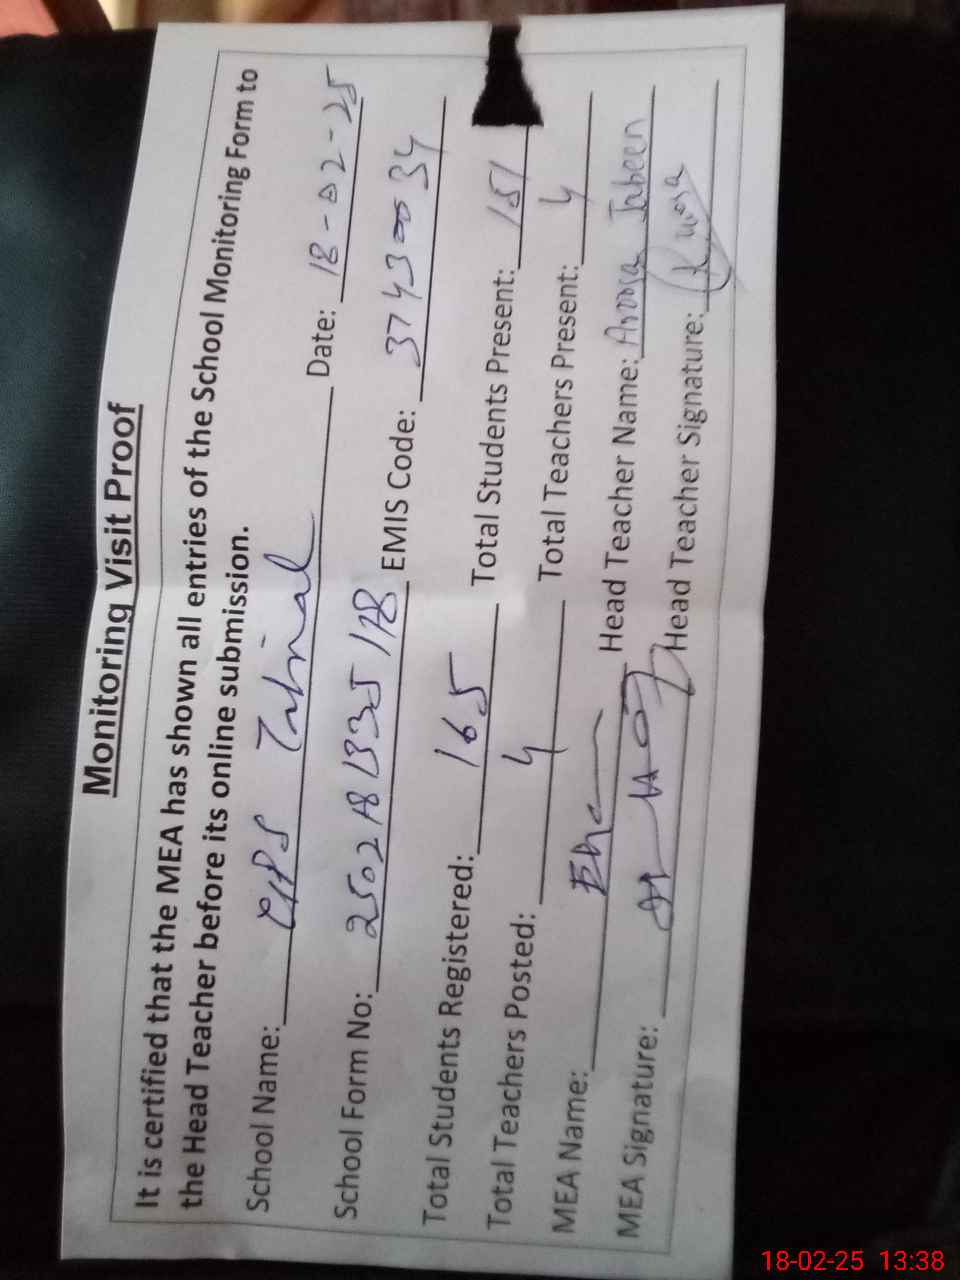 Monitoring Visit Proof
It is certified that the MEA has shown all entries of the School Monitoring Form to
the Head Teacher before its online submission.
School Name: GPS Date: 18-02-25
School Form No: EMIS Code: 37430034
Total Students Registered: 165 Total Students Present: 151
Total Teachers Posted: 4 Total Teachers Present: 4
MEA Name: Head Teacher Name: Aroosa Jabeen
MEA Signature: Head Teacher Signature:
18-02-25 13:38